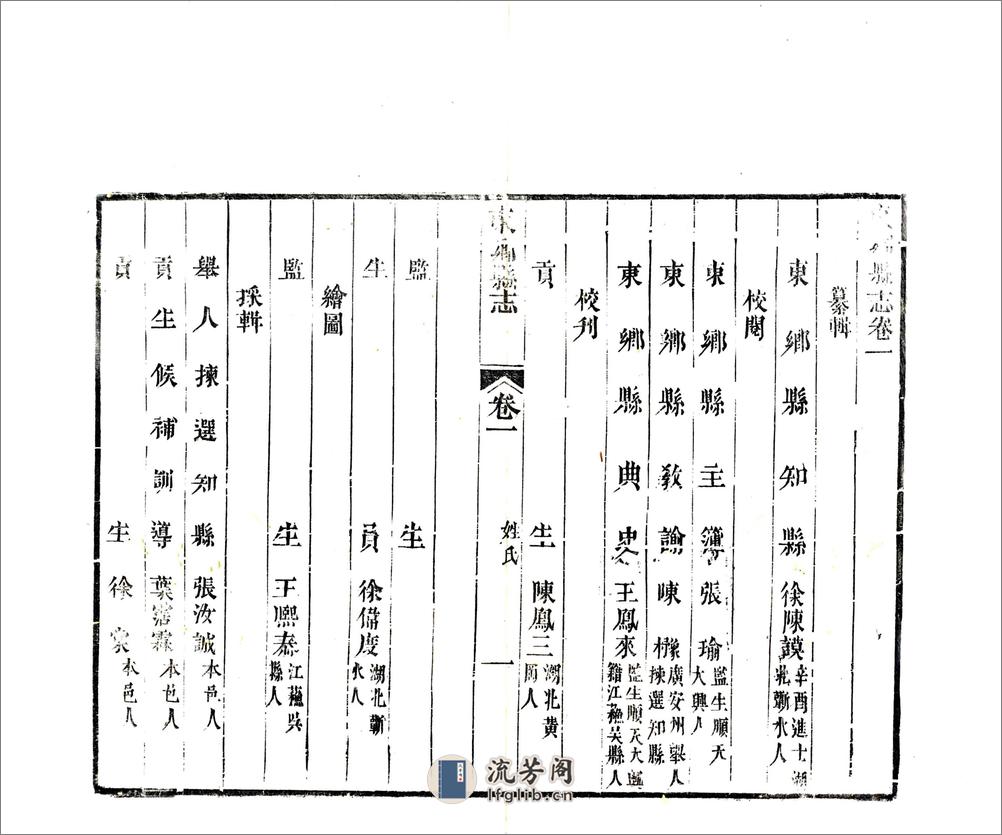 東鄉縣志卷一
纂輯
東鄉縣知縣徐陳謨辛酉進士湖北蘄水人
校閱
東鄉縣主簿張瑜監生順天大興人
東鄉縣教諭陳廣安州舉人揀選知縣
東鄉縣典史王鳳來監生順天大興籍江蘇吳縣人
校刊
貢生陳鳳三湖北黃岡人
東鄉縣志
卷一
姓氏
一
監生
生員徐備度湖北蘄水人
繪圖
監生王熙泰江蘇吳縣人
採輯
舉人揀選知縣張汝誠本邑人
貢生候補訓導葉本邑人
貢生徐本邑人
流芳阁
lfglib.cn